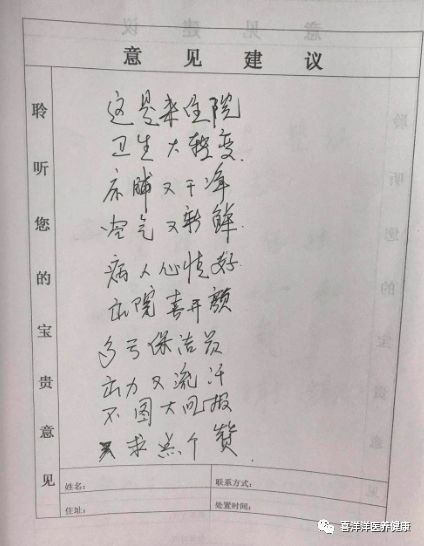 意见建议
聆听您的宝贵意见
这是来住院
卫生大轉变
床脯又干净
空气又新鲜
病人心情好
出院喜开颜
多亏保洁员
出力又流汗
不图大回报
求点个赞
姓名：
联系方式：
住址：
处置时间：
喜洋洋医养健康